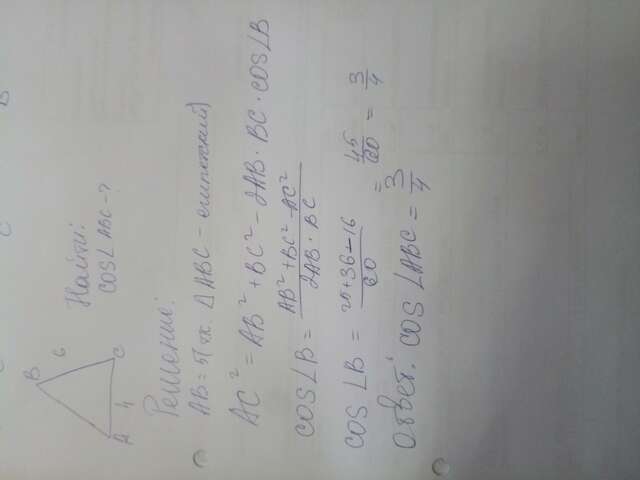 B
6
4
A
C
Найти:
cos∠ABC-?
Решение:
AB = 5 т.к. △ABC - египетский)
AC² = AB² + BC² - 2AB · BC · cos∠B
cos∠B = AB² + BC² - AC² / 2AB · BC
cos ∠B = 25 + 36 - 16 / 60 = 45/60 = 3/4
Ответ: cos ∠ABC = 3/4